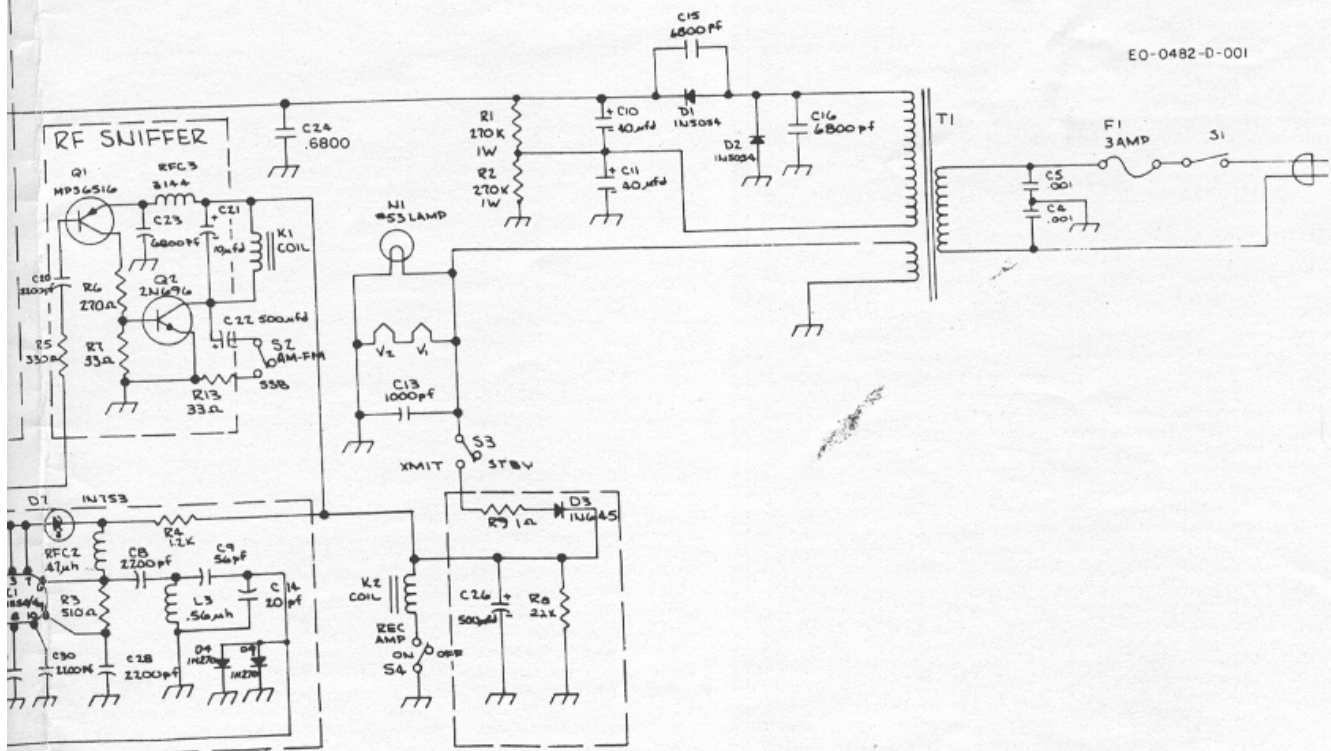 C15
6800pf
EO-0482-D-001
C24
.6800
R1
270K
1W
R2
270K
1W
+ C10
40µfd
+ C11
40µfd
D1
1N5054
D2
1N5054
C16
6800pf
T1
F1
3AMP
S1
C5
.001
C4
.001
RF SNIFFER
Q1
MPS6516
RFC3
3144
C23
6800pf
+ C21
10µfd
K1
COIL
N1
#53 LAMP
C20
2200pf
R6
270Ω
Q2
2N696
R5
330Ω
R7
33Ω
C22 500µfd
+
S2
AM-FM
SSB
R13
33Ω
V2
V1
C13
1000pf
S3
XMIT
STBY
D7
1N753
R4
1.2K
R9 1Ω
D3
1N645
RFC2
47µh
C8
2200pf
C9
56pf
R3
510Ω
L3
.56µh
20pf
K2
COIL
C26
+
500µfd
R8
2.2K
REC
AMP
ON
OFF
S4
C30
2200pf
C28
2200pf
D4
1N270
1N270